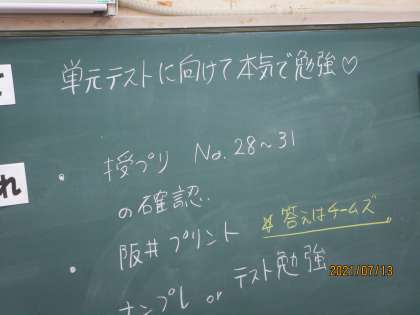 単元テストに向けて本気で勉強♡
・授プリ No.28~31
の確認.
・阪井プリント ※答えはチームズ
ナンプレ or テスト勉強
れ
2021/07/13